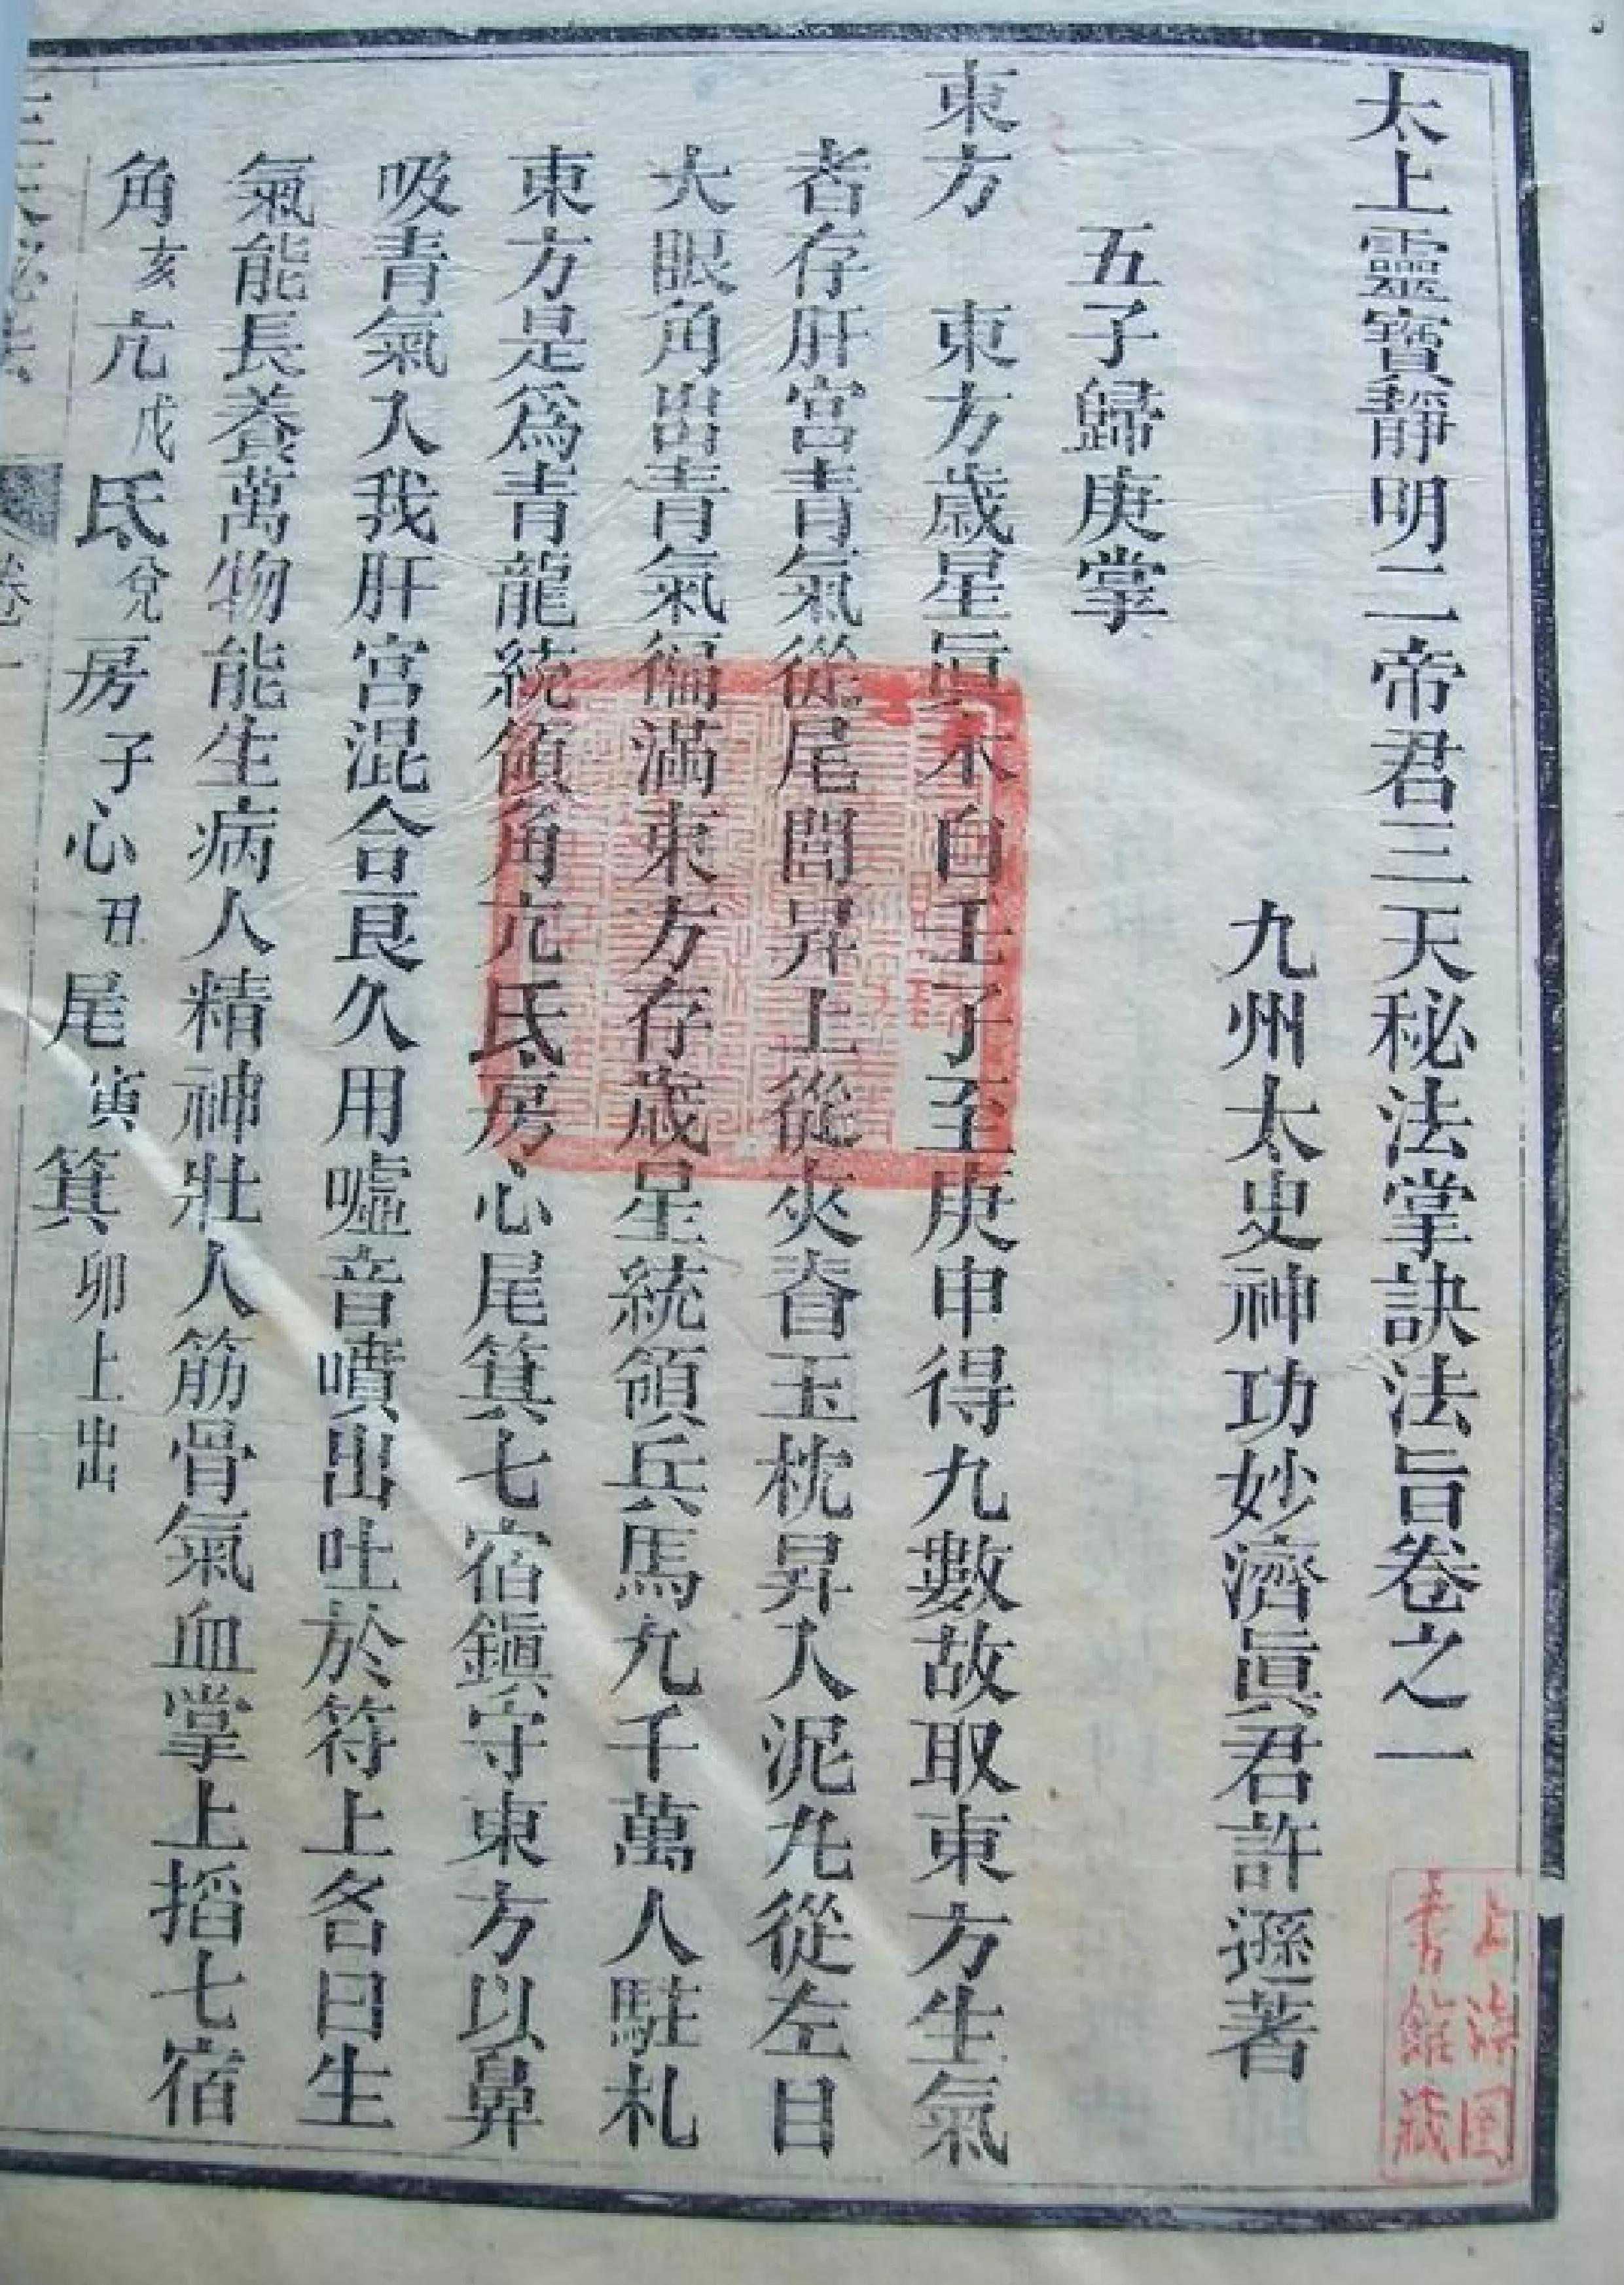 太上靈寶靜明二帝君三天秘法掌訣法旨卷之一
九州太史神功妙濟眞君許遜著
五子歸庚掌
東方　東方歲星眞木自壬子至庚申得九數故取東方生氣
者存肝宮青氣從尾閭昇上從夾脊玉枕昇入泥丸從左目
大眼角出青氣徧滿東方存歲星統領兵馬九千萬人駐札
東方是爲青龍統領角亢氐房心尾箕七宿鎭守東方以鼻
吸青氣入我肝宮混合良久用噓音噴出吐於符上名曰生
氣能長養萬物能生病人精神壯人筋骨氣血掌上搯七宿
角亥亢戌氐兌房子心丑尾寅箕卯上出
卷一
上海图
書館藏